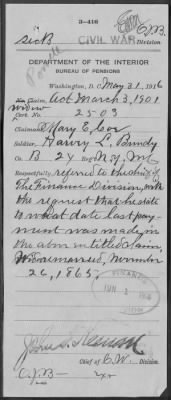 3-416
E.J.B.
CIVIL WAR Division
DEPARTMENT OF THE INTERIOR
BUREAU OF PENSIONS
Washington, D. C. May 31, 1916
Act March 3, 1901
Widow
Cert. No. 2503
Claimant Mary E. Cor
Soldier, Harry L. Bundy
Co. B 24 Reg't N.Y.
Respectfully referred to the chief of
The Finance Division, with
the request that he state
to what date last pay-
ment was made in
the above entitled claim,
Widow remarried, November
26, 1865.
FINANCE
JUN 2
Chief of C.W. Division
C.J.B—